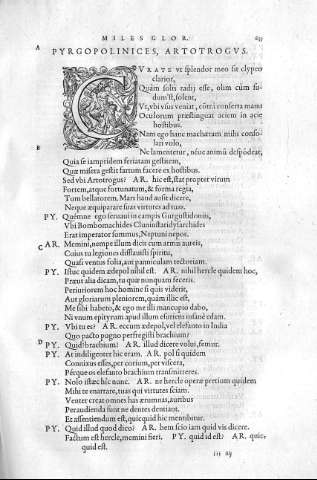 MILES GLOR.
A
PYRGOPOLINICES, ARTOTROGVS.
CVRATE vt splendor meo sit clypeo
clarior,
Quàm solis radij esse, olim cum su-
dum'st, solent,
Vt, vbi vsus veniat, cõtrà conserta manu
Oculorum præstinguat aciem in acie
hostibus.
Nam ego hanc machæram mihi conso-
lari volo,
B
Ne lamentetur, néue animũ despõdeat,
Quia se iampridem feriatam gestitem,
Quæ misera gestit fartum facere ex hostibus.
Sed vbi Artotrogus? AR. hic est, stat propter virum
Fortem, atque fortunatum, & forma regia,
Tum bellatorem. Mars haud ausit dicere,
Neque æquiparare suas virtutes ad tuas.
PY. Quémne ego seruaui in campis Gurgustidoniis,
Vbi Bombomachides Cluninstaridysarchides
Erat imperator summus, Neptuni nepos.
C AR. Memini, nempe illum dicis cum armis aureis,
Cuius tu legiones difflauisti spiritu,
Quasi ventus folia, aut panniculam tectoriam.
PY. Istuc quidem ædepol nihil est. AR. nihil hercle quidem hoc,
Præut alia dicam, tu quæ nunquam feceris.
Periuriorem hoc homine si quis viderit,
Aut gloriarum pleniorem, quàm illic est,
Me sibi habeto, & ego me illi mancopio dabo,
Ni vnum epityrum apud illum esuriens insanè edam.
PY. Vbi tu es? AR. eccum ædepol, vel elefanto in India
Quo pacto pugno perfregisti brachium?
D PY. Quid? brachium? AR. illud dicere volui, femur.
PY. At indiligenter hic eram. AR. pol si quidem
Connixus esses, per corium, per viscera,
Pérque os elefanto brachium transmitteres.
PY. Nolo istæc hîc nunc. AR. ne hercle operæ pretium quidem
Mihi te enarrare, tuas qui virtutes sciam.
Venter creat omnes has ærumnas, auribus
Peraudienda sunt ne dentes dentiant.
Et assentiendum est, quicquid hic mentibitur.
PY. Quid illud quod dico? AR. hem scio iam quid vis dicere.
Factum est hercle, memini fieri. PY. quid id est? AR. quic-
quid est.